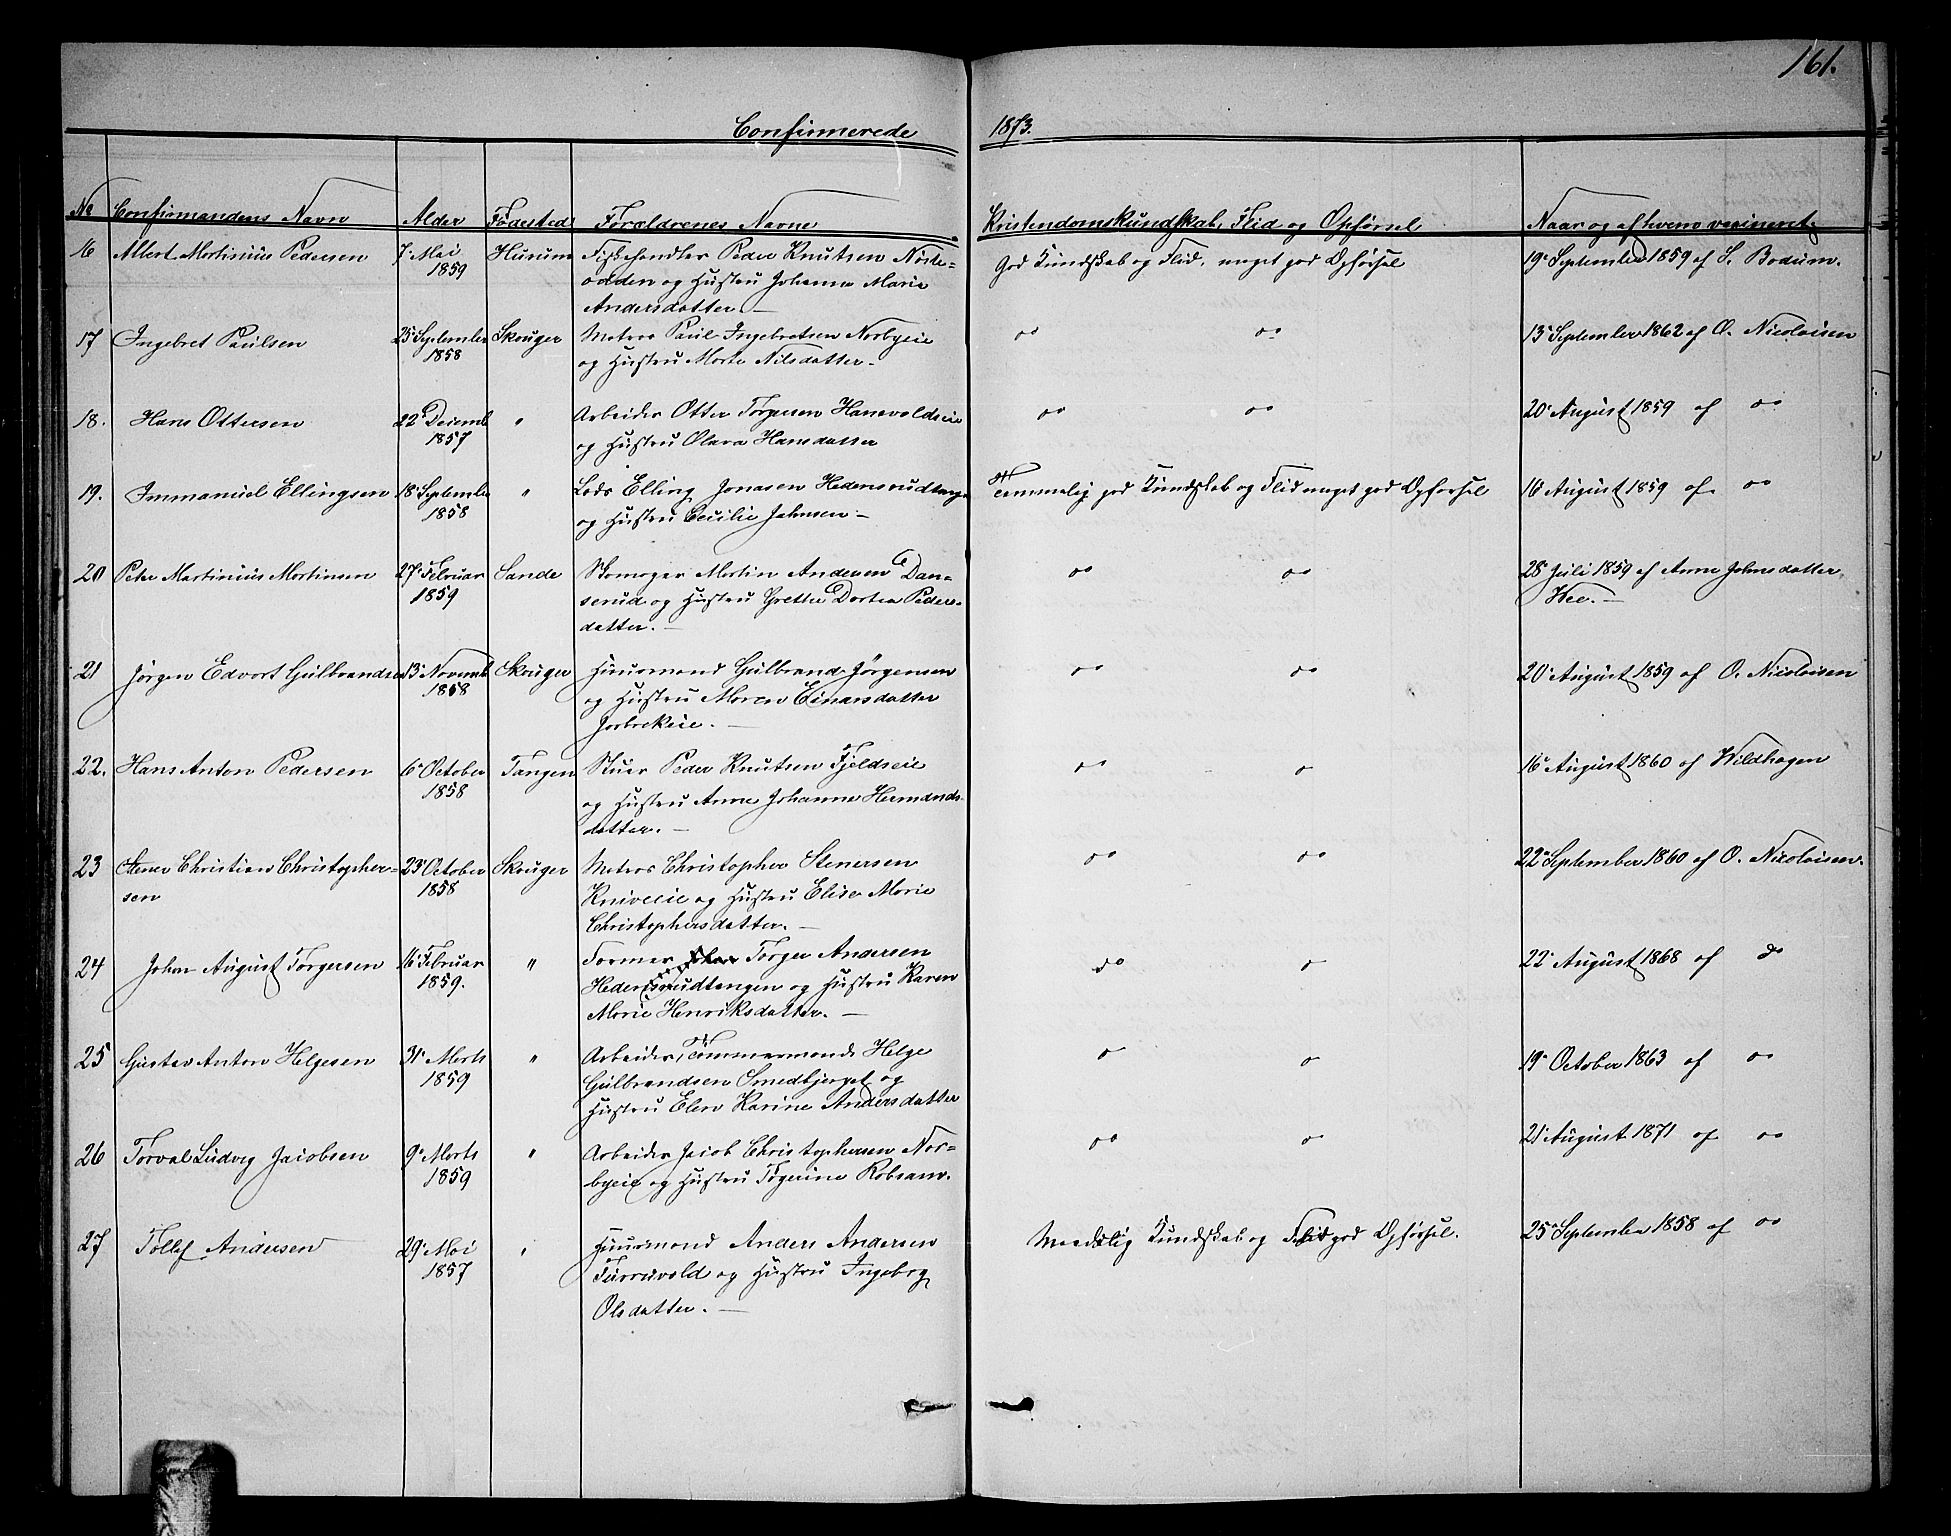 161.
Confirmerede 1873.
No Confirmandens Navn Alder Födested Forældrenes Navne Kristendomskundskab, Flid og Opförsel Naar og af hvem vaccineret
16 Albert Martinius Pedersen 7 Mai 1859 Hurum Fiskehandler Peder Knutsen Nöste= God Kundskab og Flid, meget god Opförsel 19 September 1859 af S. Bodum.
odden og Hustru Johanne Marie
Andersdatter. —
17 Ingebret Paulsen 25 September 1858 Skouger Matros Paul Ingebretsen Norbyeie do do 13 September 1862 af O. Nicolaisen
og Hustru Marte Nilsdatter.
18. Hans Ottersen 22 Decemb 1857 " Arbeider Otter Torgersen Hanevoldseie do do 20 August 1859 af do
og Hustru Olava Hansdatter
19. Immanuel Ellingsen 18 Septembe 1858 " Lods Elling Jonasen Hedensrudtangen Temmelig god Kundskab og Flid meget god Opförsel 16 August 1859 af do
og Hustru Cecilie Johnsen —
20 Peter Martinius Martinsen 27 Februar 1859 Sande Skomager Martin Andersen Dan= do do 28 Juli 1859 af Anne Johnsdatter
serud og Hustru Grethe Dortea Peders= Wee. —
datter. —
21 Jörgen Edvart Gulbrandsen 13 Novemb 1858 Skouger Huusmand Gulbrand Jörgensen do do 20 August 1859 af O. Nicolaisen
og Hustru Maren Einarsdatter
Jarbrekeie. —
22. Hans Anton Pedersen 6 October 1858 Tangen Stuer Peder Knutsen Fjeldseie do do 16 August 1860 af Wildhagen
og Hustru Anne Johanne Hermands=
datter. —
23 Stener Christian Christopher= 23 October 1858 Skouger Matros Christopher Stenersen do do 22 September 1860 af O. Nicolaisen.
sen Kniveeie og Hustru Elise Marie
Christophersdatter. —
24 Johan August Torgersen 16 Februar 1859. " Former Torger Andersen do do 22 August 1868 af do
Hedensrudtangen og Hustru Karen
Marie Henriksdatter. —
25 Gustav Anton Helgesen 31 Marts 1859 " Arbeider, Tömmermand Helge do do 19 October 1863 af do
Gulbrandsen Smedbjerget og
Hustru Elen Karine Andersdatter
26 Torval Ludvig Jacobsen 9 Marts 1859 " Arbeider Jacob Christophersen Nor= do do 21 August 1871 af do
byeie og Hustru Togerine Robsam.
27 Tollef Andersen 29 Mai 1857 " Huusmand Anders Andersen Maadelig Kundskab og Flid god Opförsel. 25 September 1858 af do
og Hustru Ingeborg
Olsdatter. —